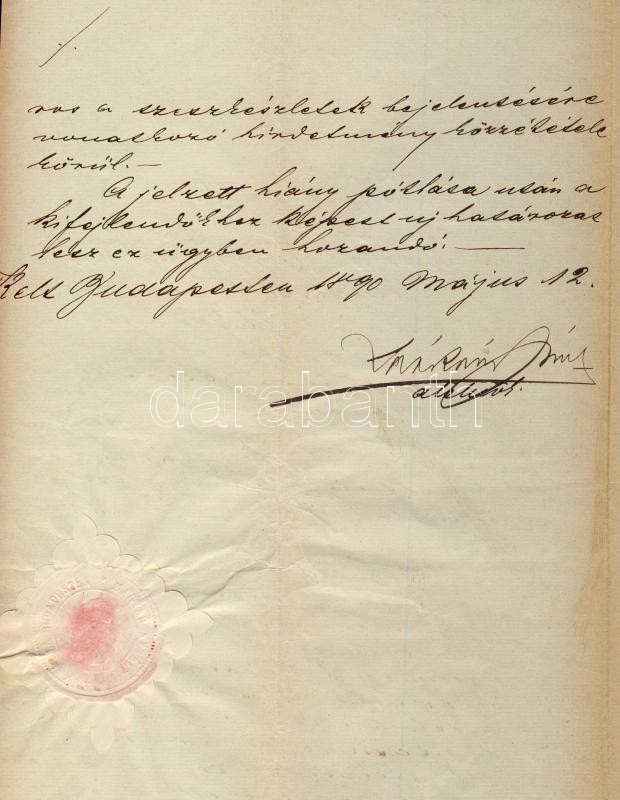 ·/.
ros a szeszkészletek bejelentésére
vonatkozó hirdetmény közzététele
körül. —
A jelzett hiány pótlása után a
kifejlendőkhez képest uj határozat
lesz ez ügyben hozandó. —
Kelt Budapesten 1890 Május 12.
alispán.
darabanth